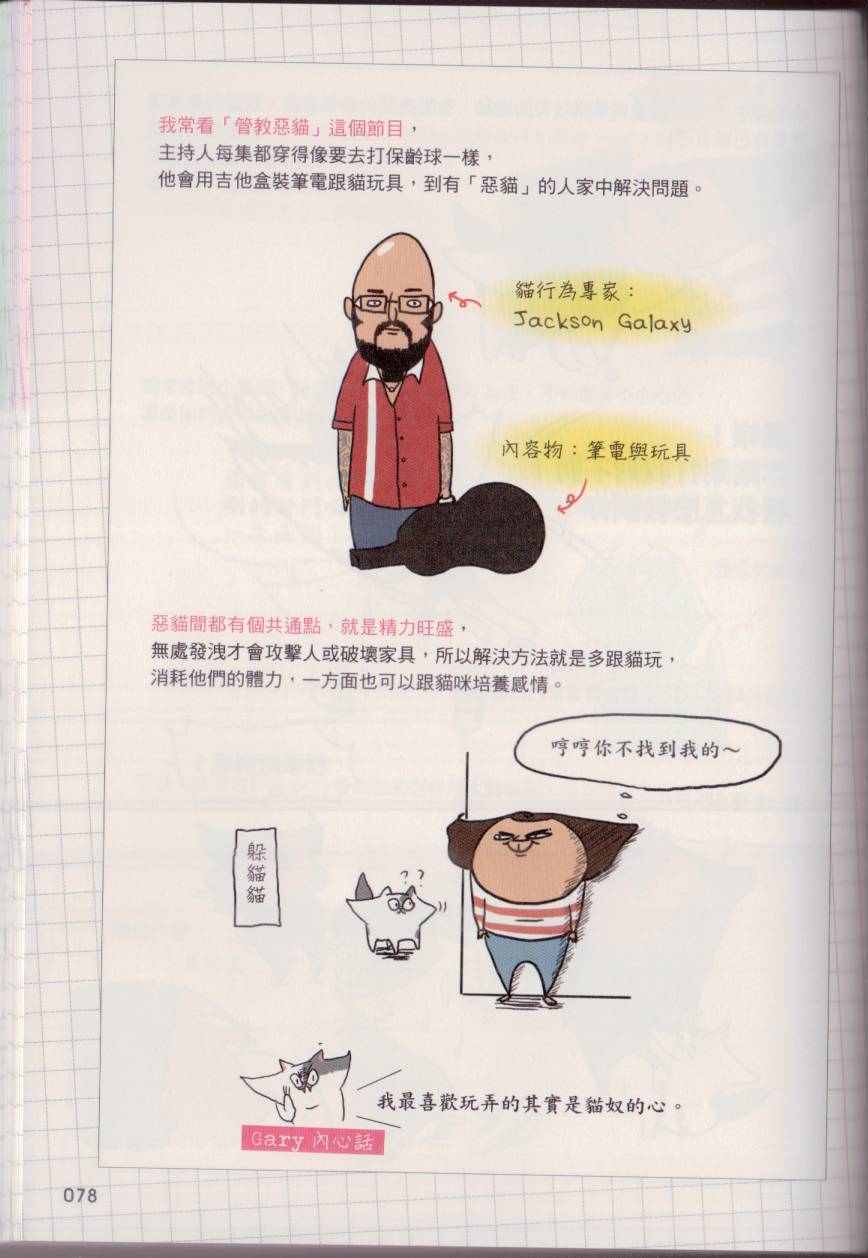 我常看「管教惡貓」這個節目，
主持人每集都穿得像要去打保齡球一樣，
他會用吉他盒裝筆電跟貓玩具，到有「惡貓」的人家中解決問題。
貓行為專家：
Jackson Galaxy
內容物：筆電與玩具
惡貓間都有個共通點，就是精力旺盛，
無處發洩才會攻擊人或破壞家具，所以解決方法就是多跟貓玩，
消耗他們的體力，一方面也可以跟貓咪培養感情。
哼哼你不找到我的～
躲貓貓
??
我最喜歡玩弄的其實是貓奴的心。
Gary 內心話
078